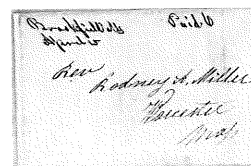 Brookfield Ms Paid 6
April 5
Rev
Rodney A. Miller
Worcester
Mass